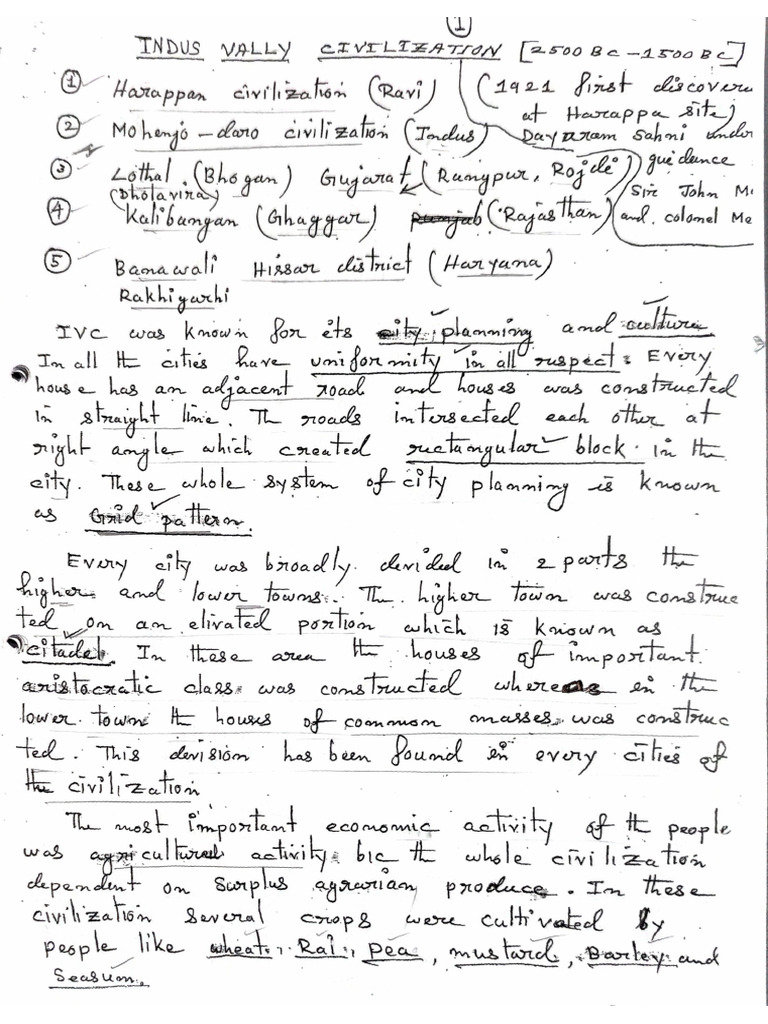 1
INDUS VALLY CIVILIZATION [2500 BC - 1500 BC]
① Harappan civilization (Ravi) (1921 first discover
at Harappa site)
② Mohenjo-daro civilization (Indus) Dayaram Sahni under
guidence
③ Lothal (Bhogan) Gujarat (Rangpur, Rojdi)
(Dholavira) Sir John M
④ Kalibangan (Ghaggar) Punjab (Rajasthan) and colonel Me
⑤ Banawali Hissar district (Haryana)
Rakhigarhi
IVC was known for its city planning and culture
In all th cities have uniformity in all ruspect. Every
house has an adjacent road and houses was constructed
in straight line. Th roads intersected each other at
right angle which created ructangular block in the
city. These whole system of city planning is known
as Grid pattern.
Every city was broadly devided in 2 parts the
higher and lower towns. Th higher town was construc
ted on an elivated portion which is known as
citadel. In these area th houses of important
aristocratic class was constructed whereas in the
lower town th houses of common masses was construc
ted. This devision has been found in every cities of
the civilization
The most important economic activity of th people
was agricultural activity b/c th whole civilization
dependent on surplus agrarian produce. In these
civilization several crops were cultivated by
people like wheat, Rai, pea, mustard, Barley and
Seasum.